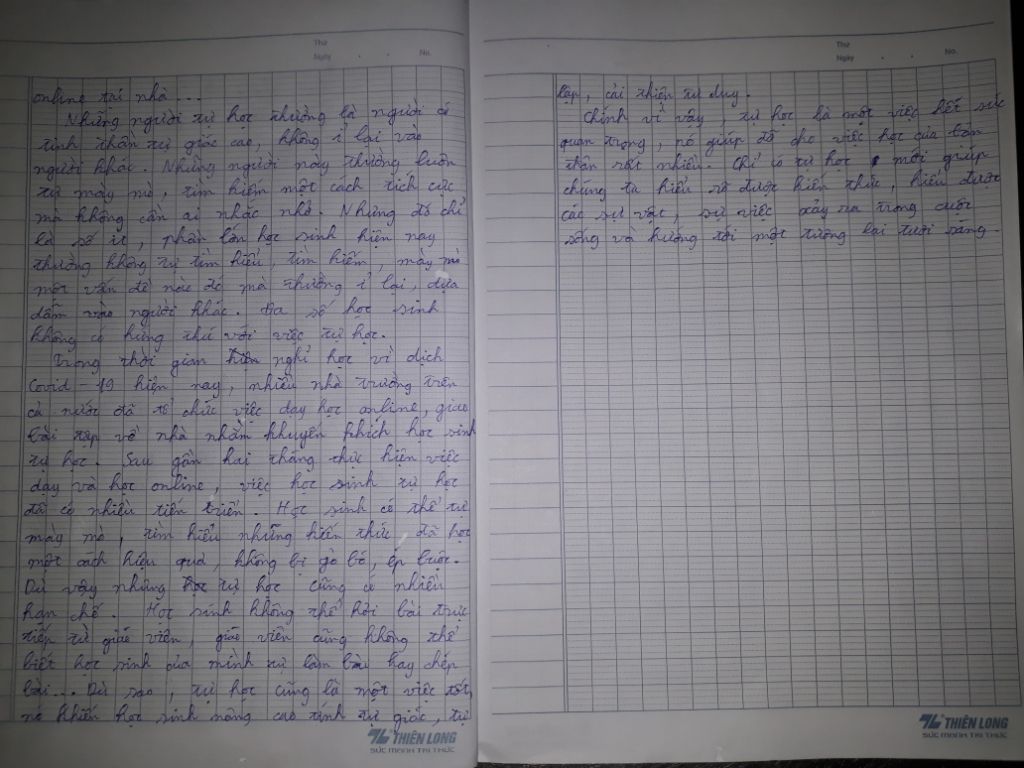 Thứ
Ngày . . No.
online tại nhà...
Những người tự học thường là người có
tinh thần tự giác cao, không ỉ lại vào
người khác. Những người này thường luôn
tự mày mò, tìm kiếm một cách tích cực
mà không cần ai nhắc nhở. Nhưng đó chỉ
là số ít, phần lớn học sinh hiện nay
thường không tự tìm hiểu, tìm kiếm, mày mò
một vấn đề nào đó mà thường ỉ lại, dựa
dẫm vào người khác. Đa số học sinh
không có hứng thú với việc tự học.
Trong thời gian nghỉ học vì dịch
Covid-19 hiện nay, nhiều nhà trường trên
cả nước đã tổ chức việc dạy học online, giao
bài tập về nhà nhằm khuyến khích học sinh
tự học. Sau gần hai tháng thực hiện việc
dạy và học online, việc học sinh tự học
đã có nhiều tiến triển. Học sinh có thể tự
mày mò, tìm hiểu những kiến thức đã học
một cách hiệu quả, không bị gò bó, ép buộc.
Dù vậy nhưng tự học cũng có nhiều
hạn chế. Học sinh không thể hỏi bài trực
tiếp từ giáo viên, giáo viên cũng không thể
biết học sinh của mình tự làm bài hay chép
bài... Dù sao, tự học cũng là một việc tốt,
nó khiến học sinh nâng cao tính tự giác, tự
THIÊN LONG
SỨC MẠNH TRI THỨC
Thứ
Ngày . . No.
lập, cải thiện tư duy.
Chính vì vậy, tự học là một việc hết sức
quan trọng, nó giúp đỡ cho việc học của bản
thân rất nhiều. Chỉ có tự học mới giúp
chúng ta hiểu rõ được kiến thức, hiểu được
các sự vật, sự việc xảy ra trong cuộc
sống và hướng tới một tương lai tươi sáng.
THIÊN LONG
SỨC MẠNH TRI THỨC